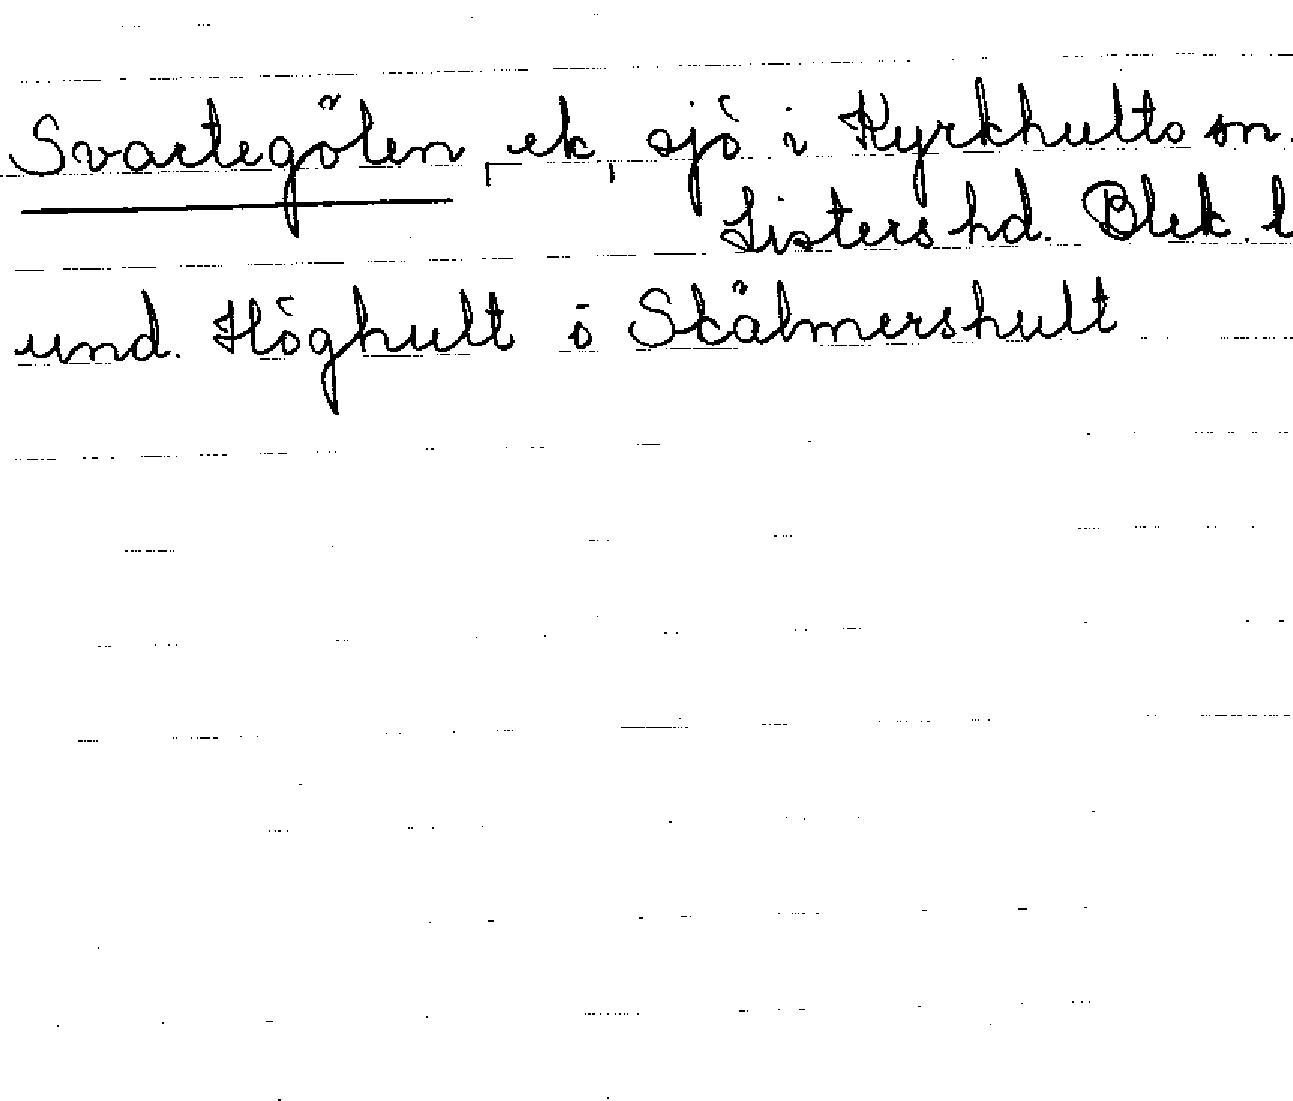 Svartegölen, ek, sjö i Kyrkhults sn.
Listers hd. Blek. l
und. Höghult o Skälmershult